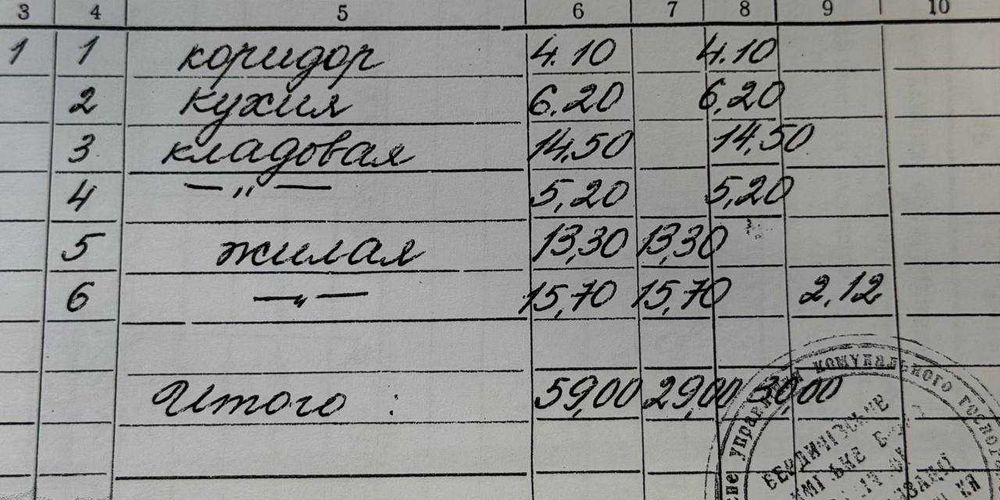 3 4 5 6 7 8 9 10
1 1 коридор 4.10 4.10
2 кухня 6.20 6,20
3 кладовая 14,50 14,50
4 — „ — 5,20 5,20
5 жилая 13,30 13,30
6 — „ — 15,70 15,70 2,12
Итого : 59,00 29,00 30,00
комунального госпо